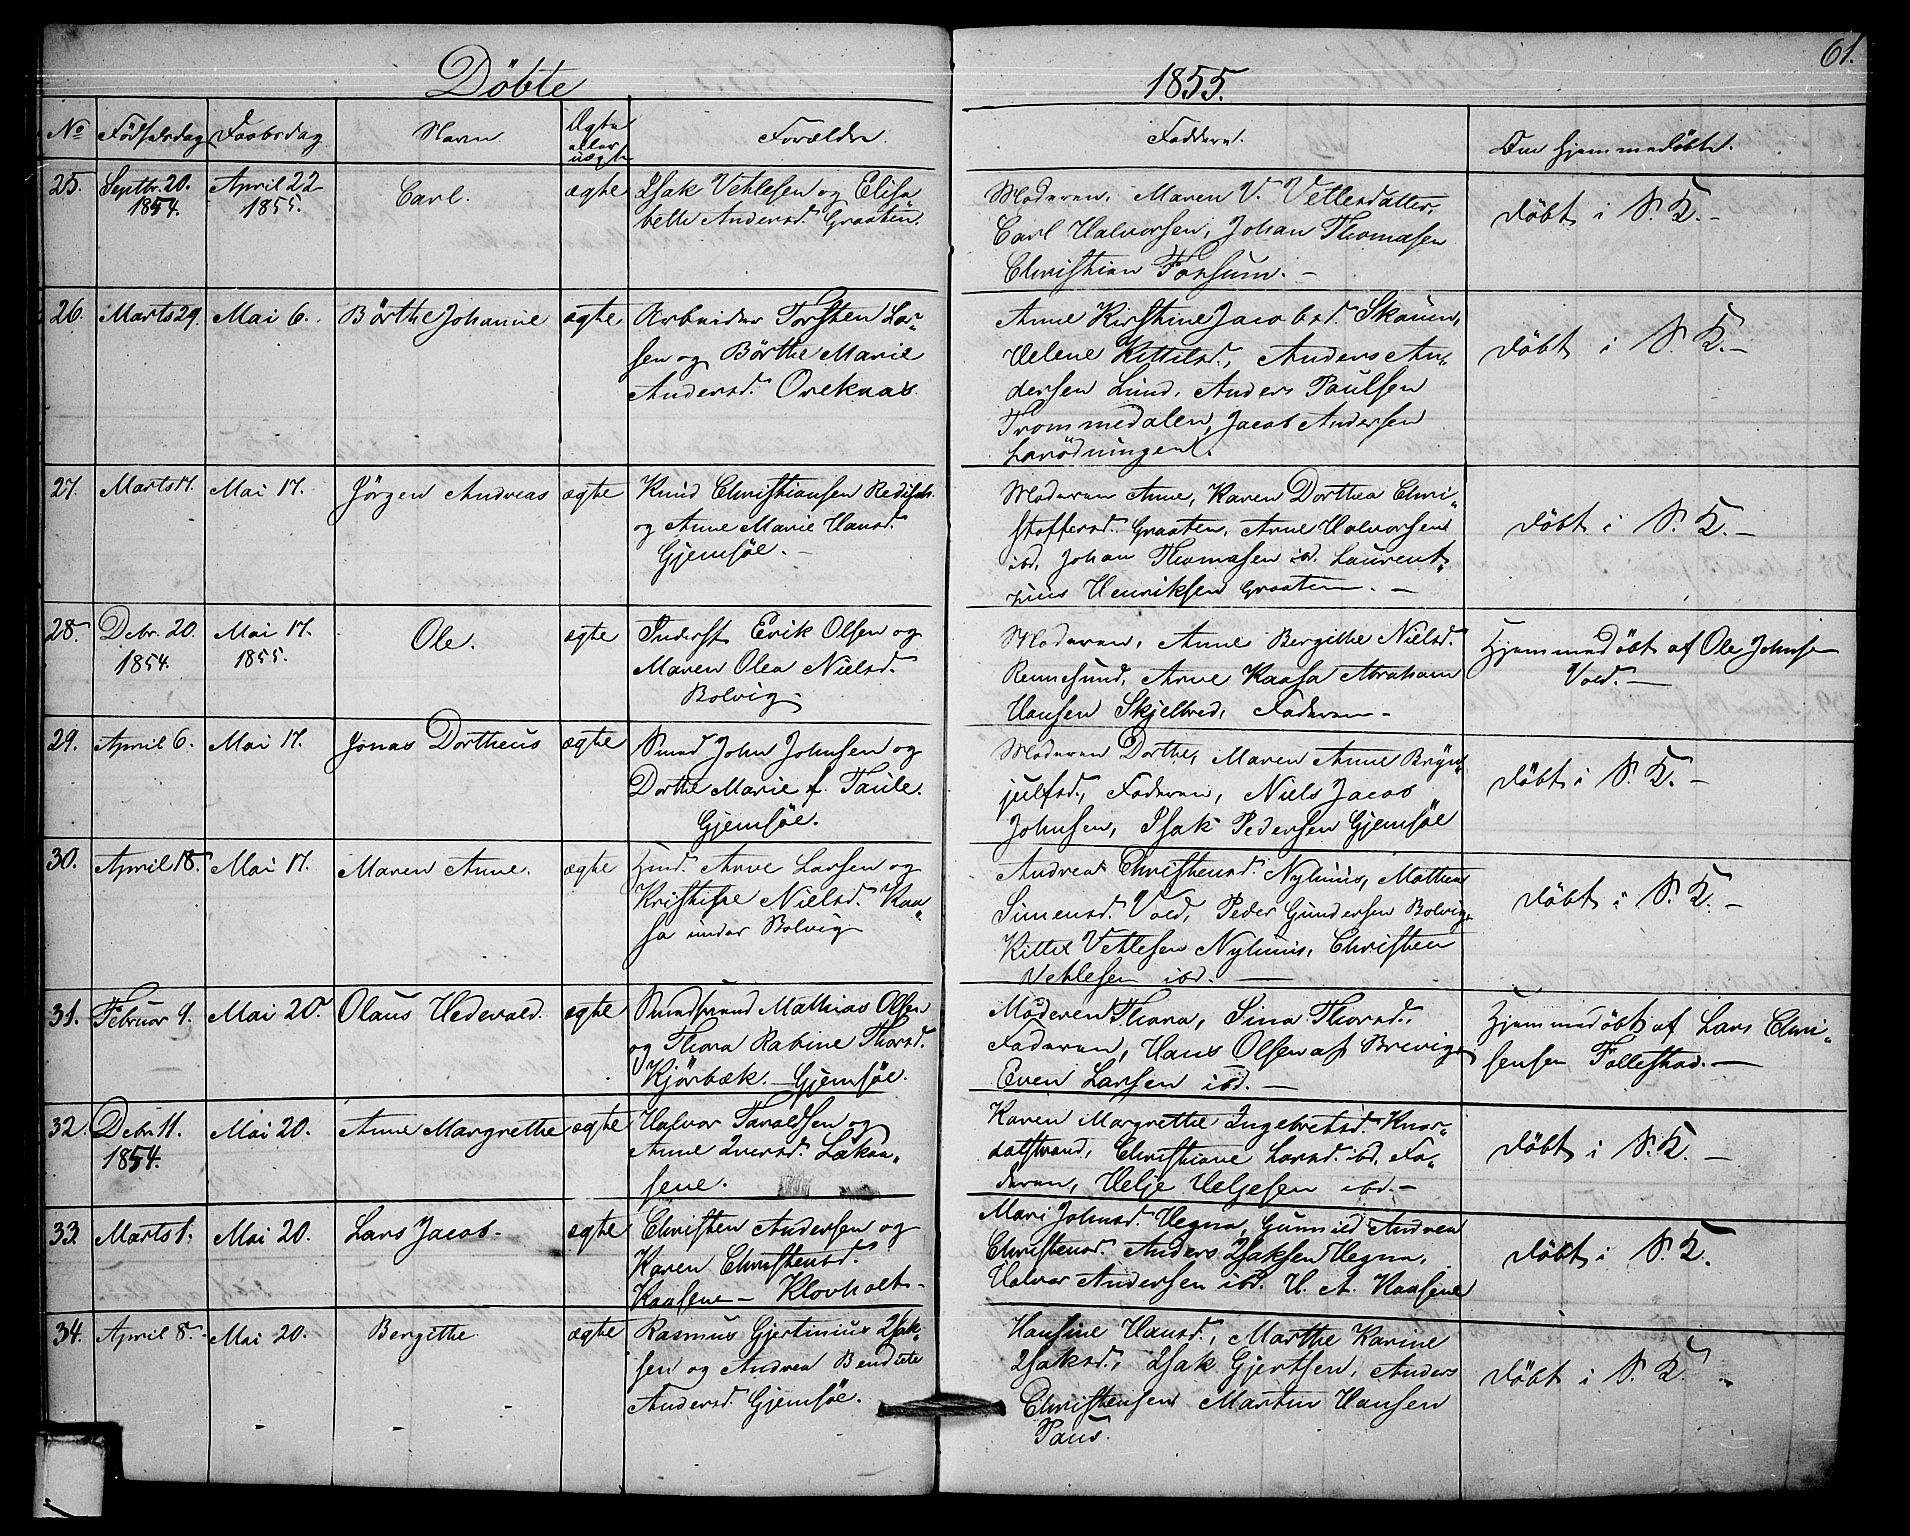 Döbte
1855.
61.
No Födselsdag Daabsdag Navn Ægte eller uægte Forældre Faddere Om hjemmedöbt.
25. Septbr. 20. 1854. April 22 1855. Carl. ægte
Isak Vethlesen og Elisa
beth Andersd. Graaten.
Moderen, Maren V. Vetlesdatter,
Carl Halvorsen, Johan Thomasen
Christian Forsum. –
döbt i S. K. –
26. Marts 29. Mai 6. Börthe Johanne ægte
Arbeider Torsten Lar-
sen og Börthe Marie
Andersd. Oreknas.
Anne Kirstine Jacobsd. Skauen,
Helene Kittilsd., Anders An-
dersen Lund, Anders Paulsen
Trommedalen, Jacob Andersen
Larödningen.
döbt i S. K. –
27. Marts 17. Mai 17. Jörgen Andreas ægte
Knud Christiansen
og Anne Marie Hansd.
Gjemsöe. –
Moderen Anne, Karen Dorthea Chri-
stoffersd. Graaten, Arne Halvorsen
ibd, Johan Thomasen ibd. Laurent-
sius Henriksen Graaten. –
döbt i S. K. –
28. Debr. 20. 1854. Mai 17. 1855. Ole. ægte
Inderst Erik Olsen og
Maren Olea Nielsd.
Bolvig
Moderen, Anne Bergithe Nielsd.
Rennesund, Arne Kaasa Abraham
Hansen Skjelbred, Faderen –
Hjemmedöbt af Ole Johnsen
Vold. –
29. April 6. Mai 17. Jonas Dortheus ægte
Smed John Johnsen og
Dorthe Marie f. Taule.
Gjemsöe.
Moderen Dorthe, Maren Anne Bryn-
julfsd., Faderen, Niels Jacob
Johnsen, Isak Pedersen Gjemsöe
döbt i S. K. –
30. April 18. Mai 17. Maren Anne. ægte
Huusmd. Arve Larsen og
Kristine Nielsd. Kaa-
sa under Bolvig
Andrea Christensd. Nyhuus, Mathea
Simensd. Vold, Peder Gundersen Bolvig
Kittil Vethlesen Nyhuus, Christen
Vethlesen ibd. –
döbt i S. K. –
31. Februar 9. Mai 20. Olaus Hedevald. ægte
Mathias Olsen
og Thora Rabine Thorsd.
Kjörbæk. – Gjemsöe.
Moderen Thora, Sina Thorsd.
Faderen, Hans Olsen af Brevig
Even Larsen ibd. –
Hjemmedöbt af Lars Chri-
sensen Follestad. –
32. Debr. 11. 1854. Mai 20. Anne Margrethe ægte
Halvor Taraldsen og
Anne Iversd. Lakaa-
sene.
Karen Margrethe Ingebretsd. Knar-
dalstrand, Christiane Larsd. ibd, Fa-
deren, Helje Heljesen ibd. –
döbt i S. K. –
33. Marts 1. Mai 20. Lars Jacob. ægte
Christen Andersen og
Karen Christensd.
Kaasene – Klovholt –
Mari Johnsd. Hegna, Gunnild Andrea
Christensd. Anders Isaksen Hegna,
Halvor Andersen ibd. H. A. Kaasene
döbt i S. K.
34. April 8. Mai 20. Bergithe. ægte
Rasmus Gjertinius Isak-
sen og Andrea Bendicte
Andersd. Gjemsöe.
Hansine Hansd., Marthe Karine
Isaksd., Isak Gjertsen, Anders
Christensen Martin Hansen
Paus.
döbt i S. K. –